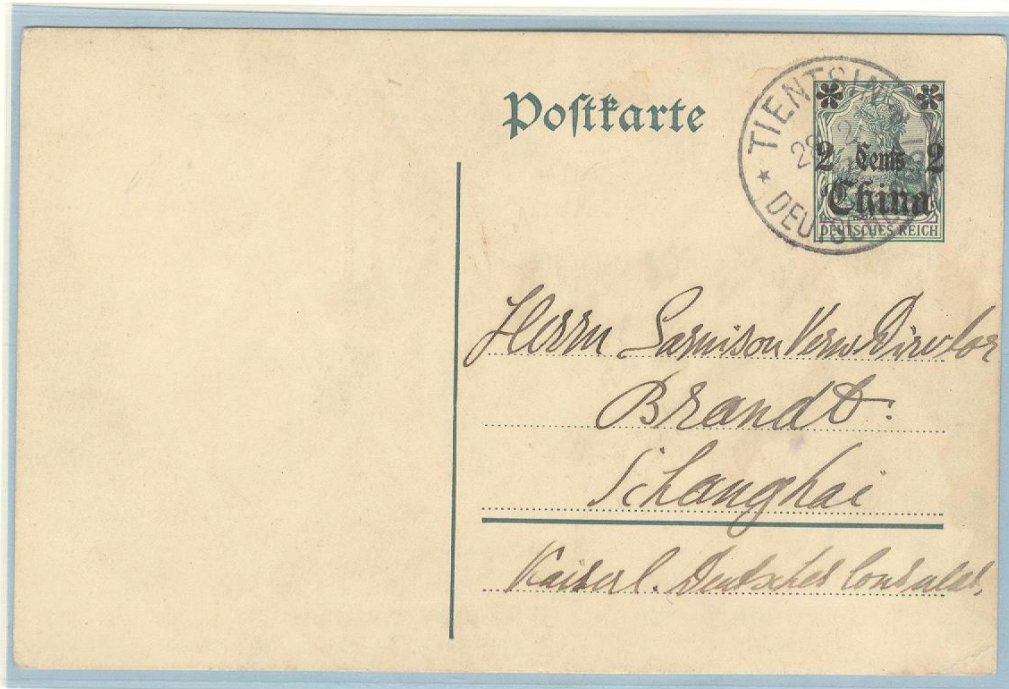 Postkarte
* TIENTSIN
DEUTSCHE
2 Cents 2
China
DEUTSCHES REICH
Herrn Garnison Verw Director
Brandt.
Schanghai
Kaiserl. Deutsches Consulat.